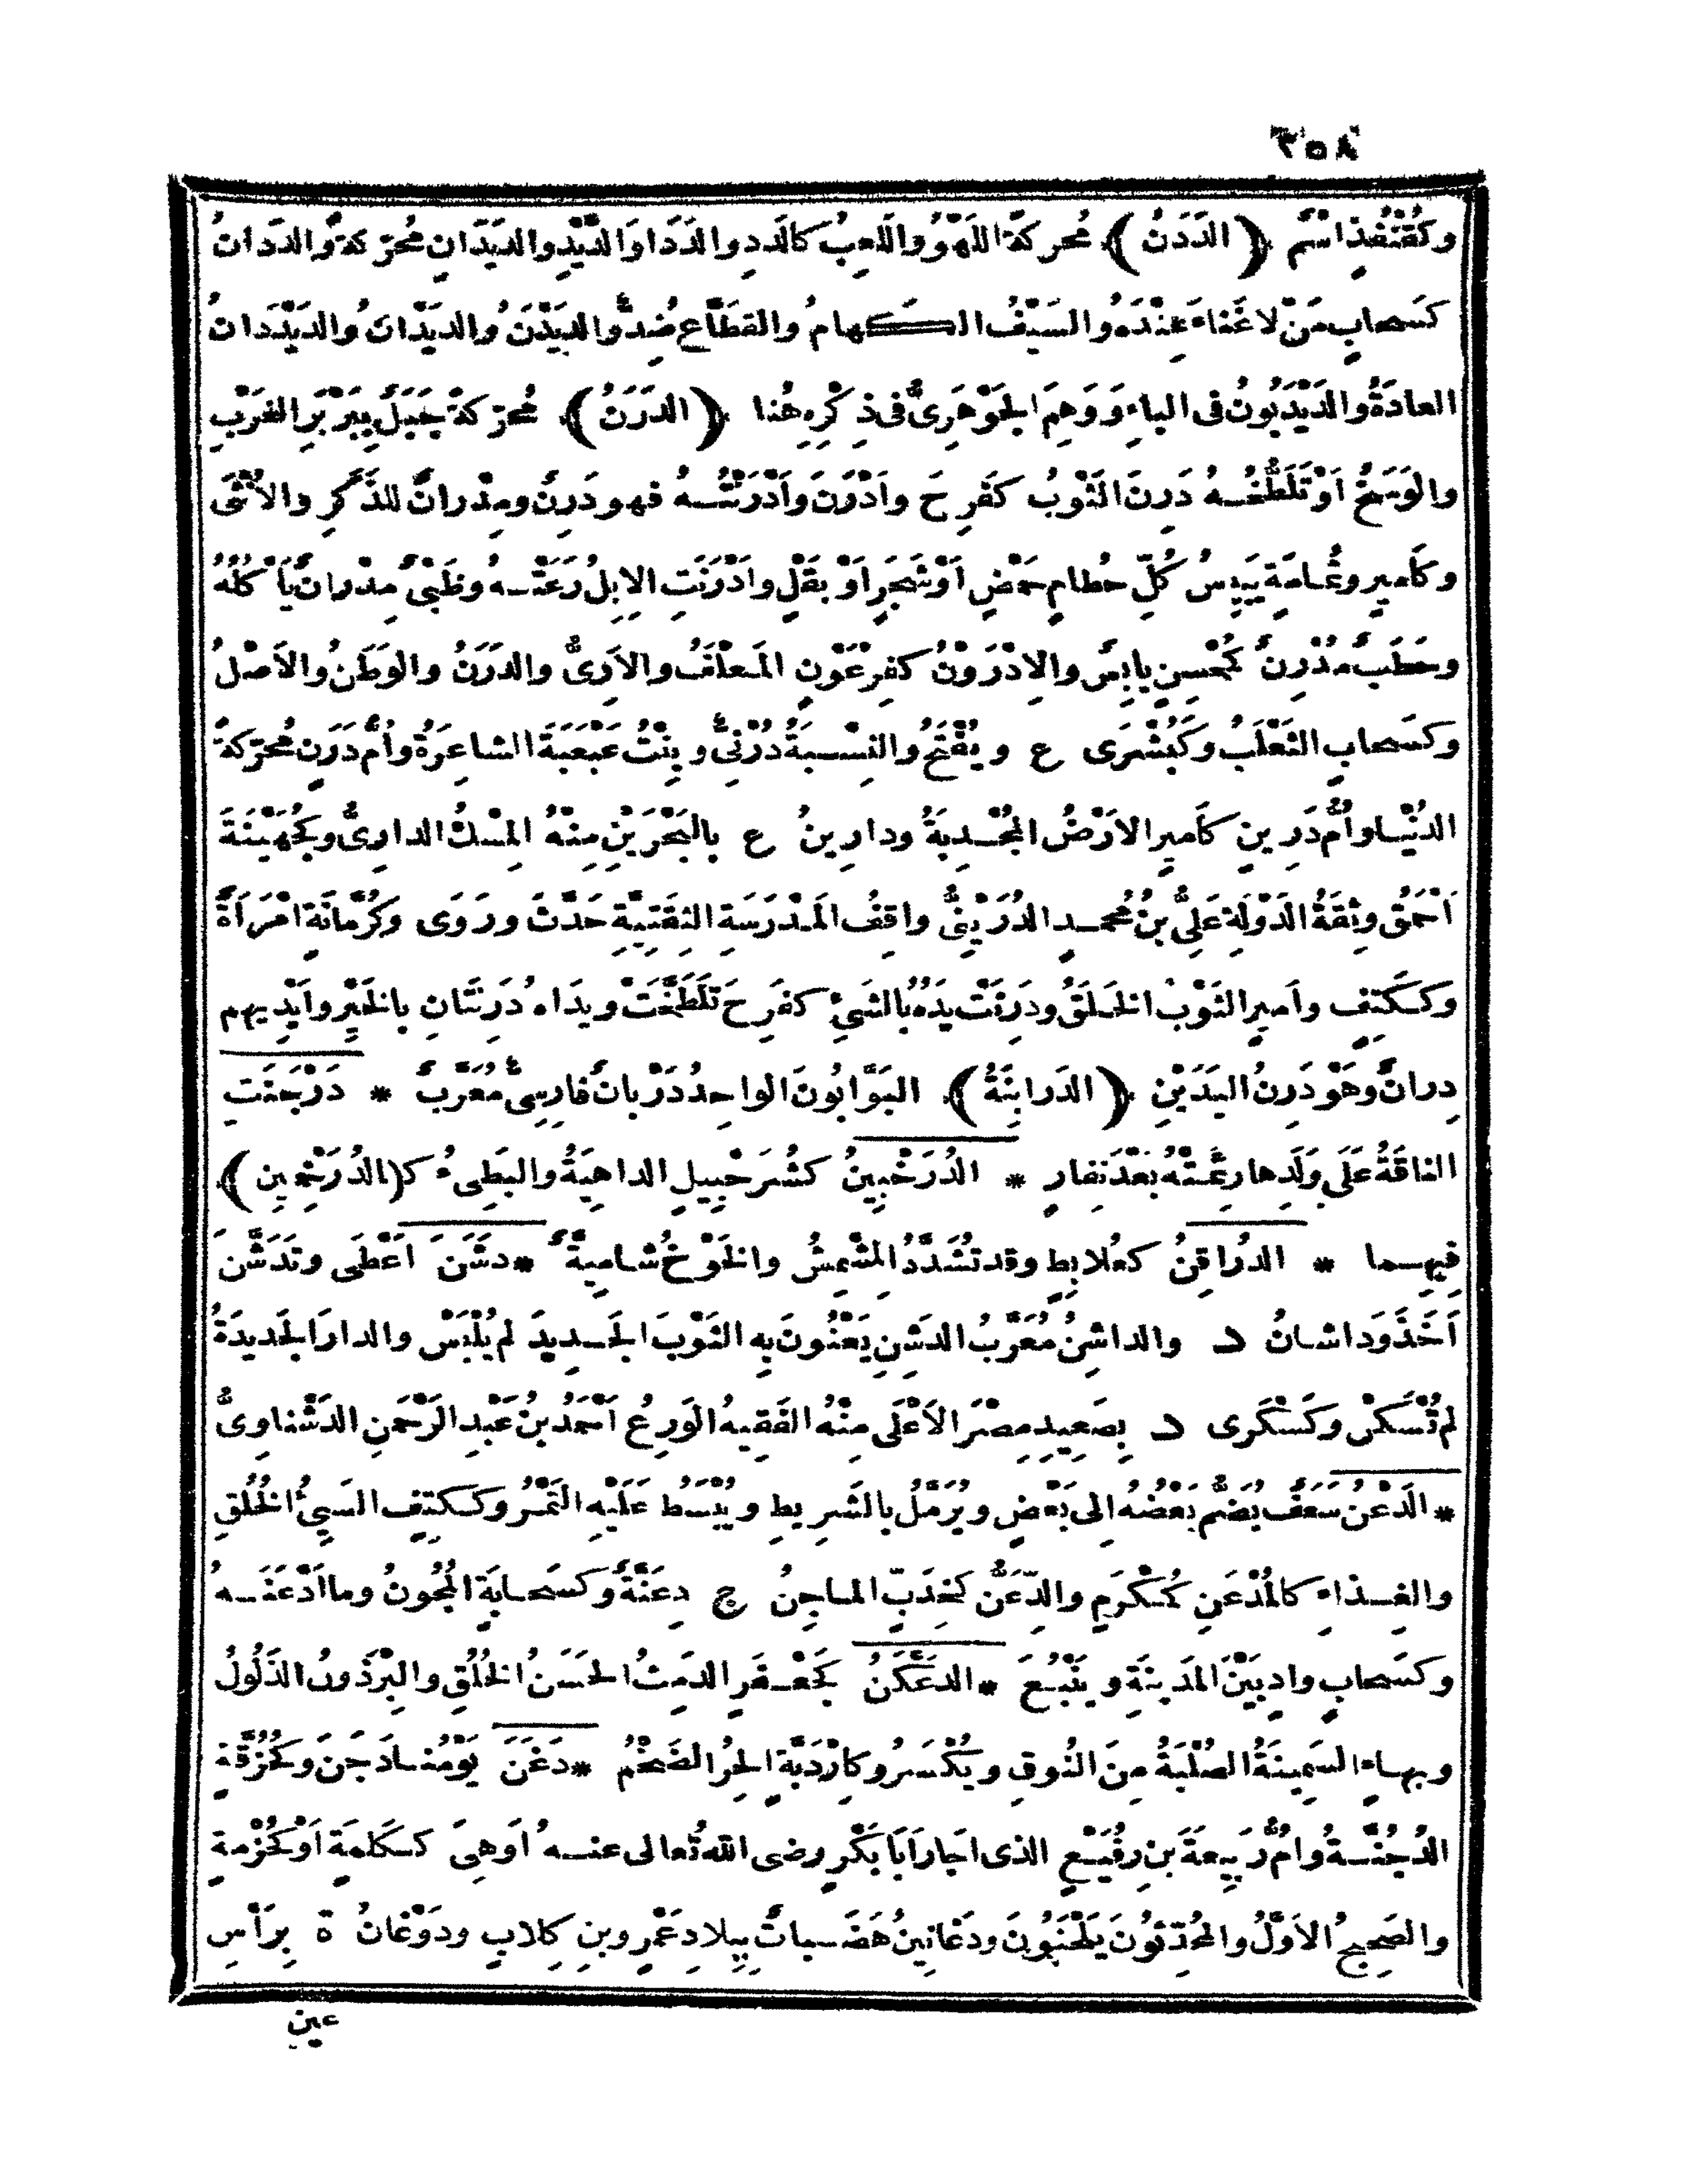 ٢٥٨
وكَقُنْفُذٍ اسْمٌ ﴿الدَدَنُ﴾ مُحركَةً اللَهْوُ واللَعِبُ كالدَدِ والدَدَا وَالدَّيْدِ والدَيَدَانِ مُحَرّكةً والدَدانُ
كسَحابٍ مَنْ لا غَناءَ عِنْدَه والسَيْفُ الكَهامُ والقطَّاعِ ضِدٌّ والدَيْدَنُ والديْدانُ والديَدَدانُ
العادَةُ والدَيْدَبُونُ فى الباءِ وَوَهِمَ الجَوْهَرِىُّ فى ذِكْرِهِ هُنا ﴿الدَرَنُ﴾ مُحرّكةً جَبَلٌ بِبَرْبَرِ الغَرْبِ
والوَسَخُ اَوْ تَلَطُّخُهُ دَرِنَ الثَوْبُ كفَرِحَ واَدْرَنَ واَدْرَنْتُهُ فهو دَرِنٌ ومِدْرانٌ للذَكَرِ والاُنْثَى
وكاَميرٍ وثُمامَةٍ يَبِيسُ كُلِّ حُطامٍ حَمْضٍ اَوْ شَجَرٍ اَوْ بَقْلٍ واَدْرَنَتِ الاِبِلُ رَعَتْهُ وظَبْىٌ مِدْرانٌ يَأْكُلُهُ
وحَطَبٌ مُدْرِنٌ كمُحْسِنٍ يابِسٌ والاِدْرَوْنُ كفِرْعَوْنٍ المَعْلَفُ والاَرِىُّ والدَرَنُ والوَطَنُ والاَصْلُ
وكسَحابٍ الثَعْلَبُ وكَبُشْرَى ع ويُفْتَحُ والنِسْبَةُ دُرْنِىٌّ وبِنْتُ عَبْعَبَةَ الشاعِرَةُ واُمُّ دَرَنٍ مُحرّكةً
الدنْيا واُمُّ دَرِينٍ كاَميرٍ الاَرْضُ المُجْدِبَةُ ودارِينُ ع بالبَحْرَيْنِ مِنْهُ المِسْكُ الدارِىُّ وكجُهَيْنَةَ
اَحْمَقُ وثِقَةُ الدَوْلَةِ عَلِىُّ بنُ مُحمدٍ الدُرَيْنِىُّ واقِفُ المَدْرَسَةِ الثِقَتِيَّةِ حَدَّثَ ورَوَى وكَرُمّانَةٍ امْرَاَةٌ
وككَتِفٍ واَميرٍ الثَوْبُ الخَلَقُ ودَرِنَتْ يَدُهُ بالشَىْءِ كفَرِحَ تَلَطَّخَتْ ويدَاهُ دَرِنَتَانِ بالخَيْرِ واَيْدِيهِم
دِرانٌ وهَوْ دَرِنُ اليَدَيْنِ ﴿الدَرابِنَةُ﴾ البَوَّابُونَ الواحِدُ دَرْبانٌ فارِسِىٌّ مُعَرَّبٌ * دَرْجَنَتِ
الناقَةُ عَلَى وَلَدِها رئِمَتْهُ بَعْدَ نِفارٍ * الدُرَخْبِينُ كشُرَحْبِيلٍ الداهِيَةُ والبَطِىءُ كـ(الدُرَخْمِينِ)
فِيهِما * الدُراقِنُ كعُلابِطٍ وقد تُشَدَّدُ المِشْمِشُ والخَوْخُ شامِيةٌ * دشَنَ اَعْطَى وتَدَشَّنَ
اَخَذَ وَداشانُ د والداشِنُ مُعَرَّبُ الدَشِنِ يَعْنُونَ بِه الثَوْبَ الجَديدَ لم يُلْبَسْ والدارَ الجَديدَةُ
لم تُسْكَنْ وكَسَكْرَى د بِصَعِيدِ مِصْرَ الاَعْلَى مِنْهُ الفَقِيهُ الوَرِعُ اَحْمَدُ بنُ عَبْدِ الرَحْمَنِ الدَشْناوِىُّ
* الدَعْنُ سَعَفٌ يُضَمُّ بَعْضُهُ اِلى بَعْضٍ ويُرَمَّلُ بالشَرِيطِ ويُبْسَطُ عَلَيْهِ التَمْرُ وككَتِفٍ السَيِّئُ الخُلُقِ
والغِذاءِ كالمُدْعَنِ كمُكْرَمٍ والدِّعَنُّ كخِدَبٍّ الماجِنُ ج دِعَنَّةٌ وكسَحابَةٍ المُجُونُ وما اَدْعَنَهُ
وكسَحابٍ وادٍ بَيْنَ المَدينَةِ ويَنْبُعَ * الدَعْكَنُ كجَعْفَرٍ الدمِثُ الحَسَنُ الخُلُقِ والبِرْذَونُ الذَلُولُ
وبهاءٍ السَمِينَةُ الصُلْبَةُ مِنَ النُوقِ ويُكْسَرُ وكاِرْدَبَّةٍ الحِرُ الضَخْمُ * دَغَنَ يَوْمُنا دَجَنَ وكَحُزُقَّةٍ
الدُجُنَّةُ واُمُّ رَبِيعَةَ بنِ رفَيْعٍ الذى اَجارَ اَبَا بَكْرٍ رضى اللّٰه تُعالى عنهُ اَوهِىَ ككَلِمَةٍ اَوْ كحُزْمةٍ
والصَحِيحُ الاَوَّلُ والمُحَدِّثُونَ يَلْحَنُونَ ودَغانِينُ هَضَباتٌ بِبِلادِ عَمْرِو بنِ كِلابٍ ودَوْغانُ ة بِرَأْسِ
عين